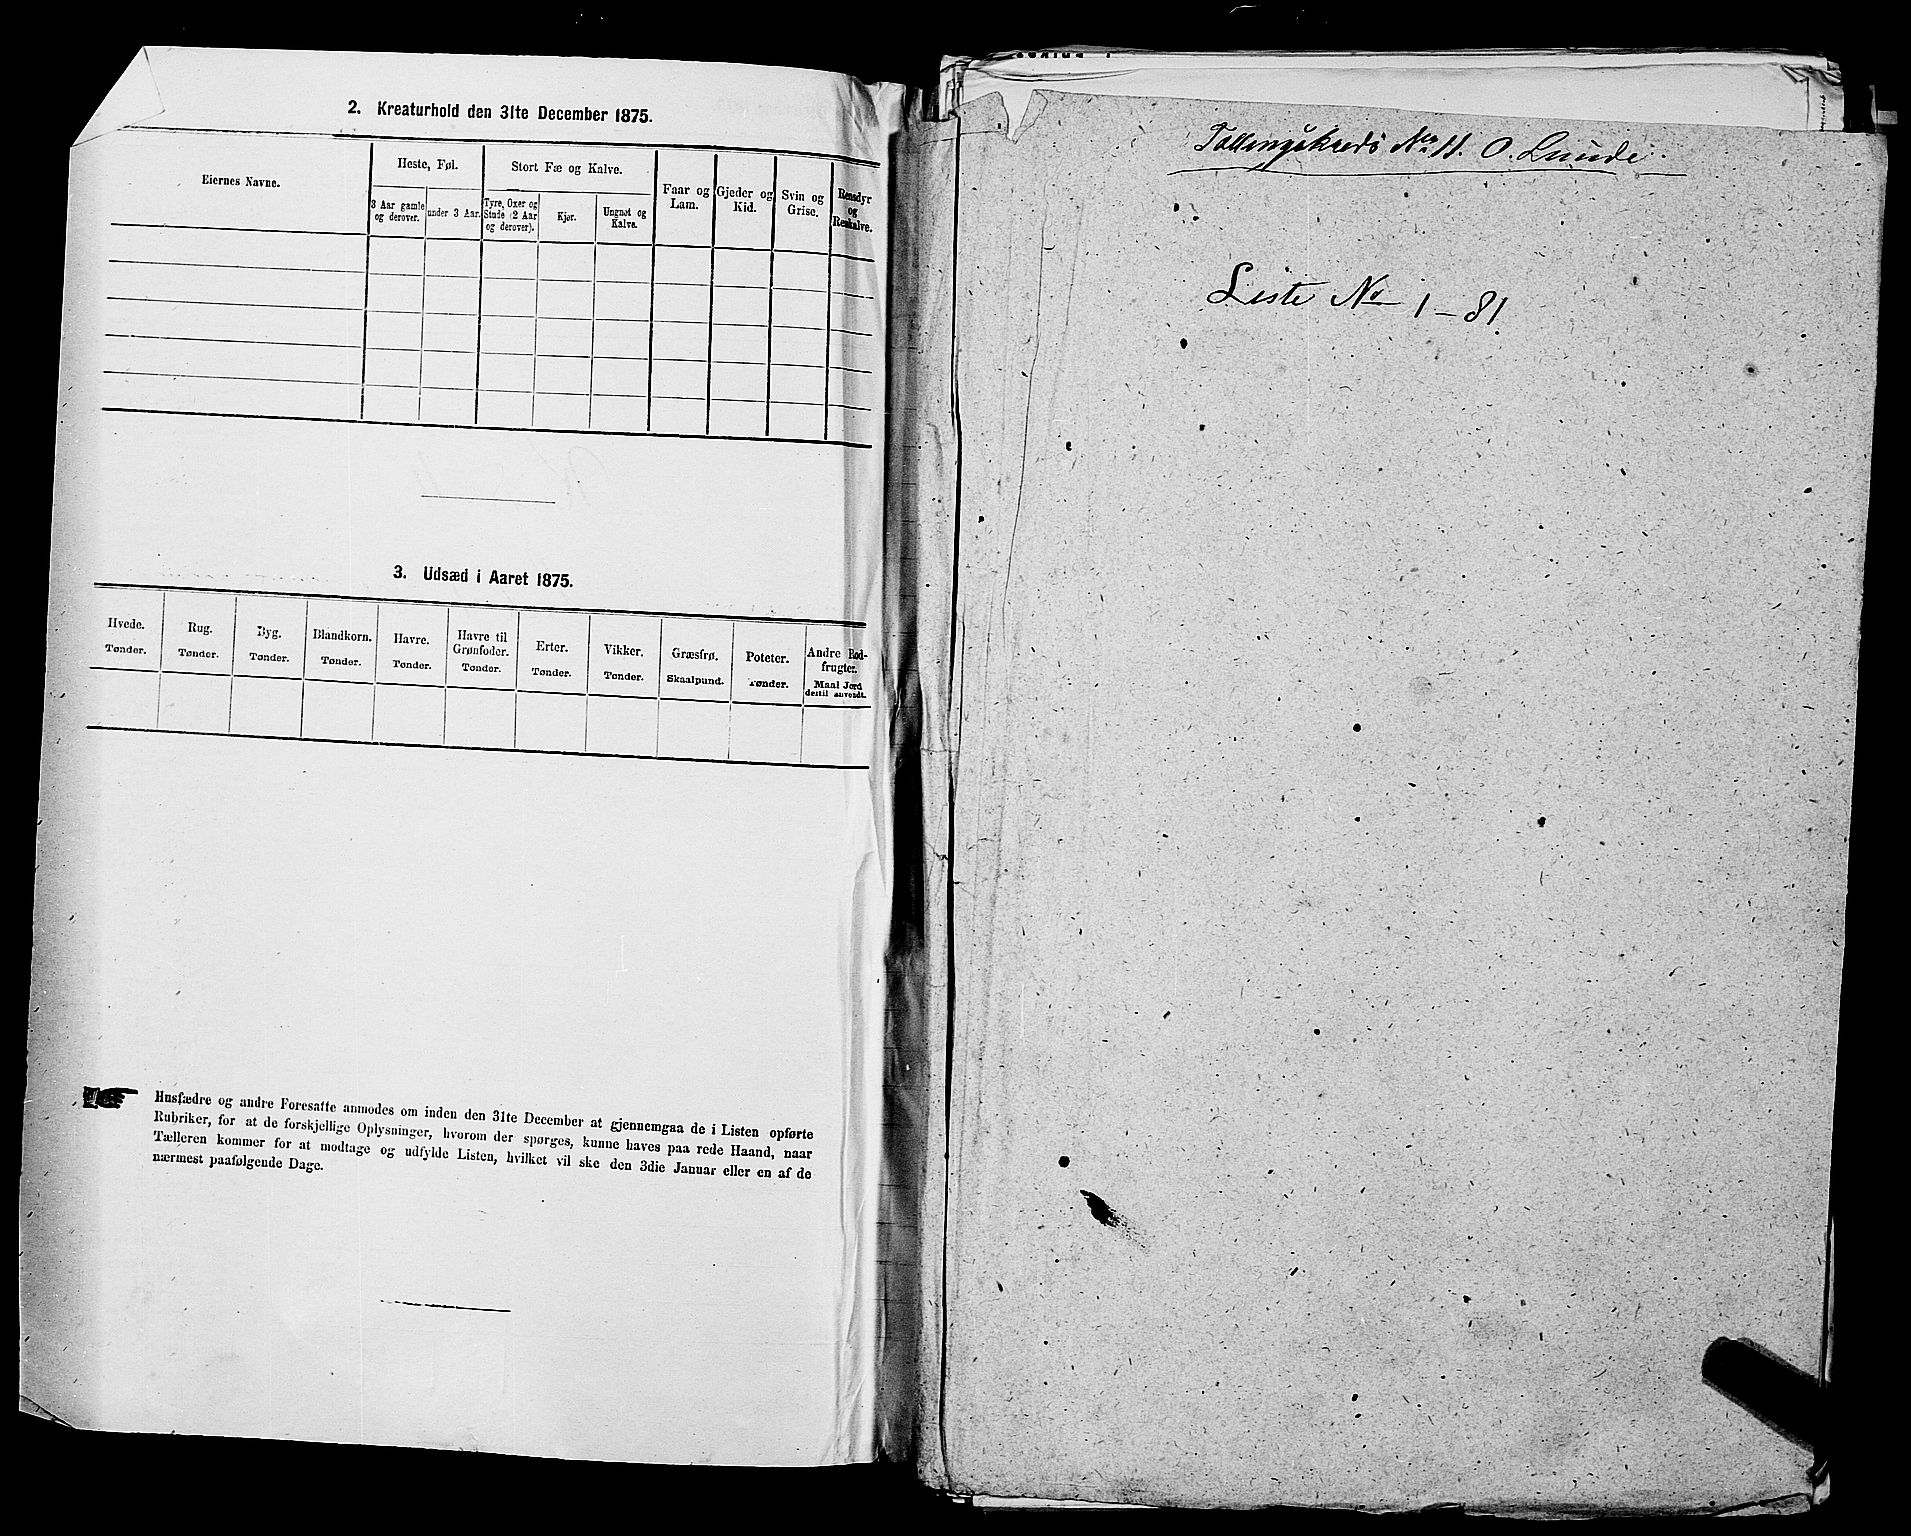 2. Kreaturhold den 31te December 1875.
Eiernes Navne.
Heste, Føl.
Stort Fæ og Kalve.
Faar og
Lam.
Gjeder og
Kid.
Svin og
Grise.
Rensdyr
og
Renkalve.
3 Aar gamle
og derover.
under 3 Aar.
Tyre, Oxer og
Stude (2 Aar
og derover).
Kjør.
Ungnøt og
Kalve.
3. Udsæd i Aaret 1875.
Hvede.
Tønder.
Rug.
Tønder.
Byg.
Tønder.
Blandkorn.
Tønder.
Havre.
Tønder.
Havre til
Grønfoder.
Tønder.
Erter.
Tønder.
Vikker.
Tønder.
Græsfrø.
Skaalpund.
Poteter.
Tønder.
Andre Rod-
frugter.
Maal Jord
dertil anvendt.
Husfædre og andre Foresatte anmodes om inden den 31te December at gjennemgaa de i Listen opførte
Rubriker, for at de forskjellige Oplysninger, hvorom der spørges, kunne haves paa rede Haand, naar
Tælleren kommer for at modtage og udfylde Listen, hvilket vil ske den 3die Januar eller en af de
nærmest paafølgende Dage.
Tællingskreds No 11. O. Lunde.
Liste No 1-81